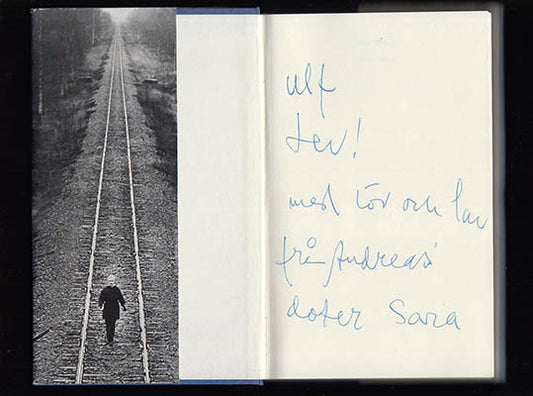 Ulf
Lev!
med löv och lav
från Andreas'
doter Sara